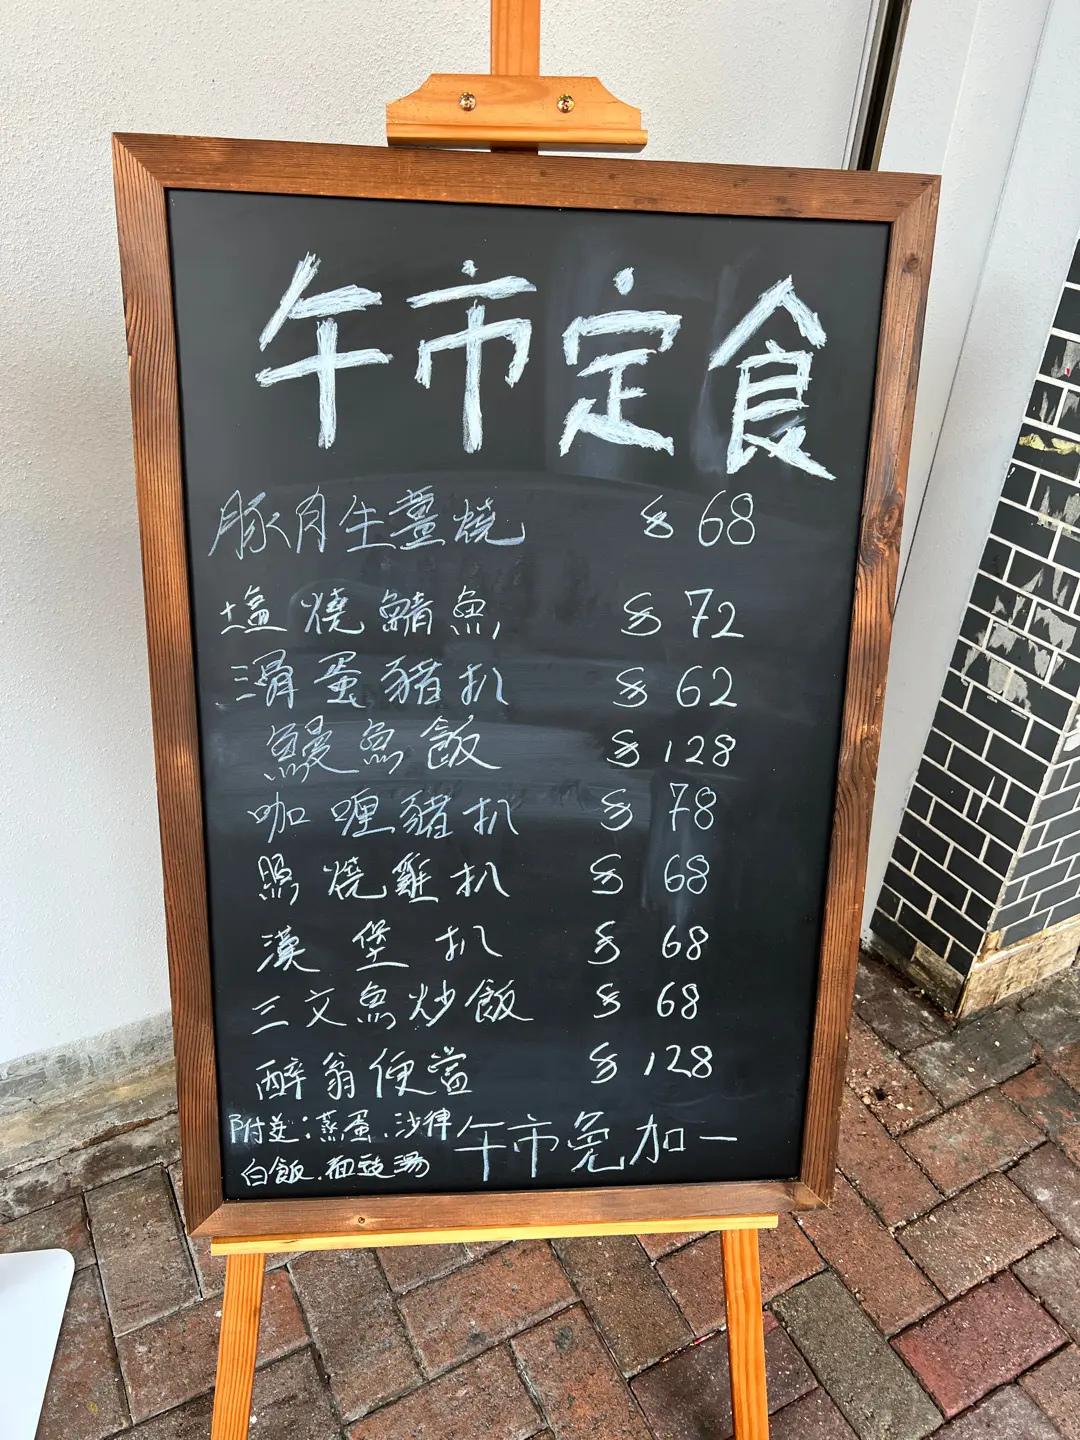 午市定食
豚肉生薑燒 $68
塩燒鯖魚 $72
滑蛋豬扒 $62
鰻魚飯 $128
咖喱豬扒 $78
照燒雞扒 $68
漢堡扒 $68
三文魚炒飯 $68
醉翁便當 $128
附送:蒸蛋.沙律
白飯.麵豉湯
午市免加一